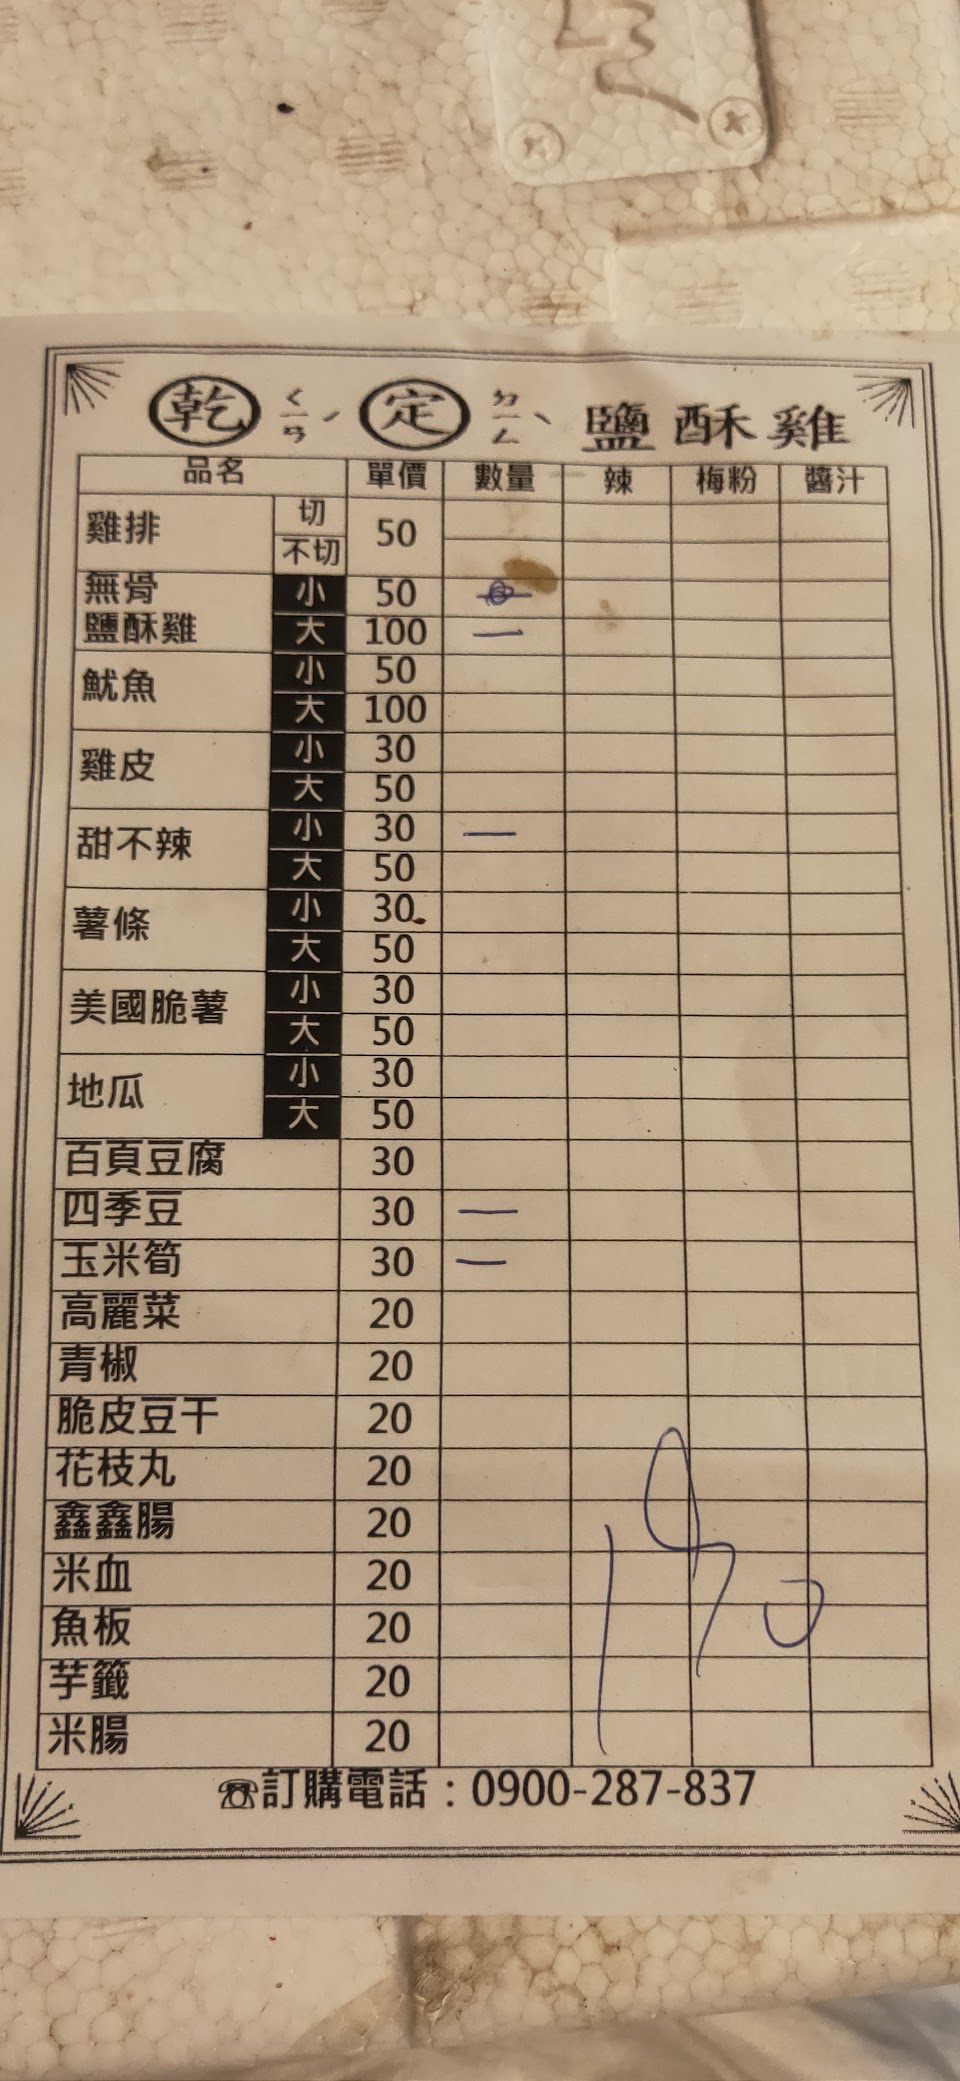 乾 ㄑㄧㄢˊ 定 ㄉㄧㄥˋ 鹽酥雞
品名 單價 數量 辣 梅粉 醬汁
雞排 切 50
不切
無骨 小 50
鹽酥雞 大 100 一
魷魚 小 50
大 100
雞皮 小 30
大 50
甜不辣 小 30 一
大 50
薯條 小 30
大 50
美國脆薯 小 30
大 50
地瓜 小 30
大 50
百頁豆腐 30
四季豆 30 一
玉米筍 30 一
高麗菜 20
青椒 20
脆皮豆干 20
花枝丸 20
鑫鑫腸 20
米血 20
魚板 20
芋籤 20
米腸 20
190
☏訂購電話：0900-287-837